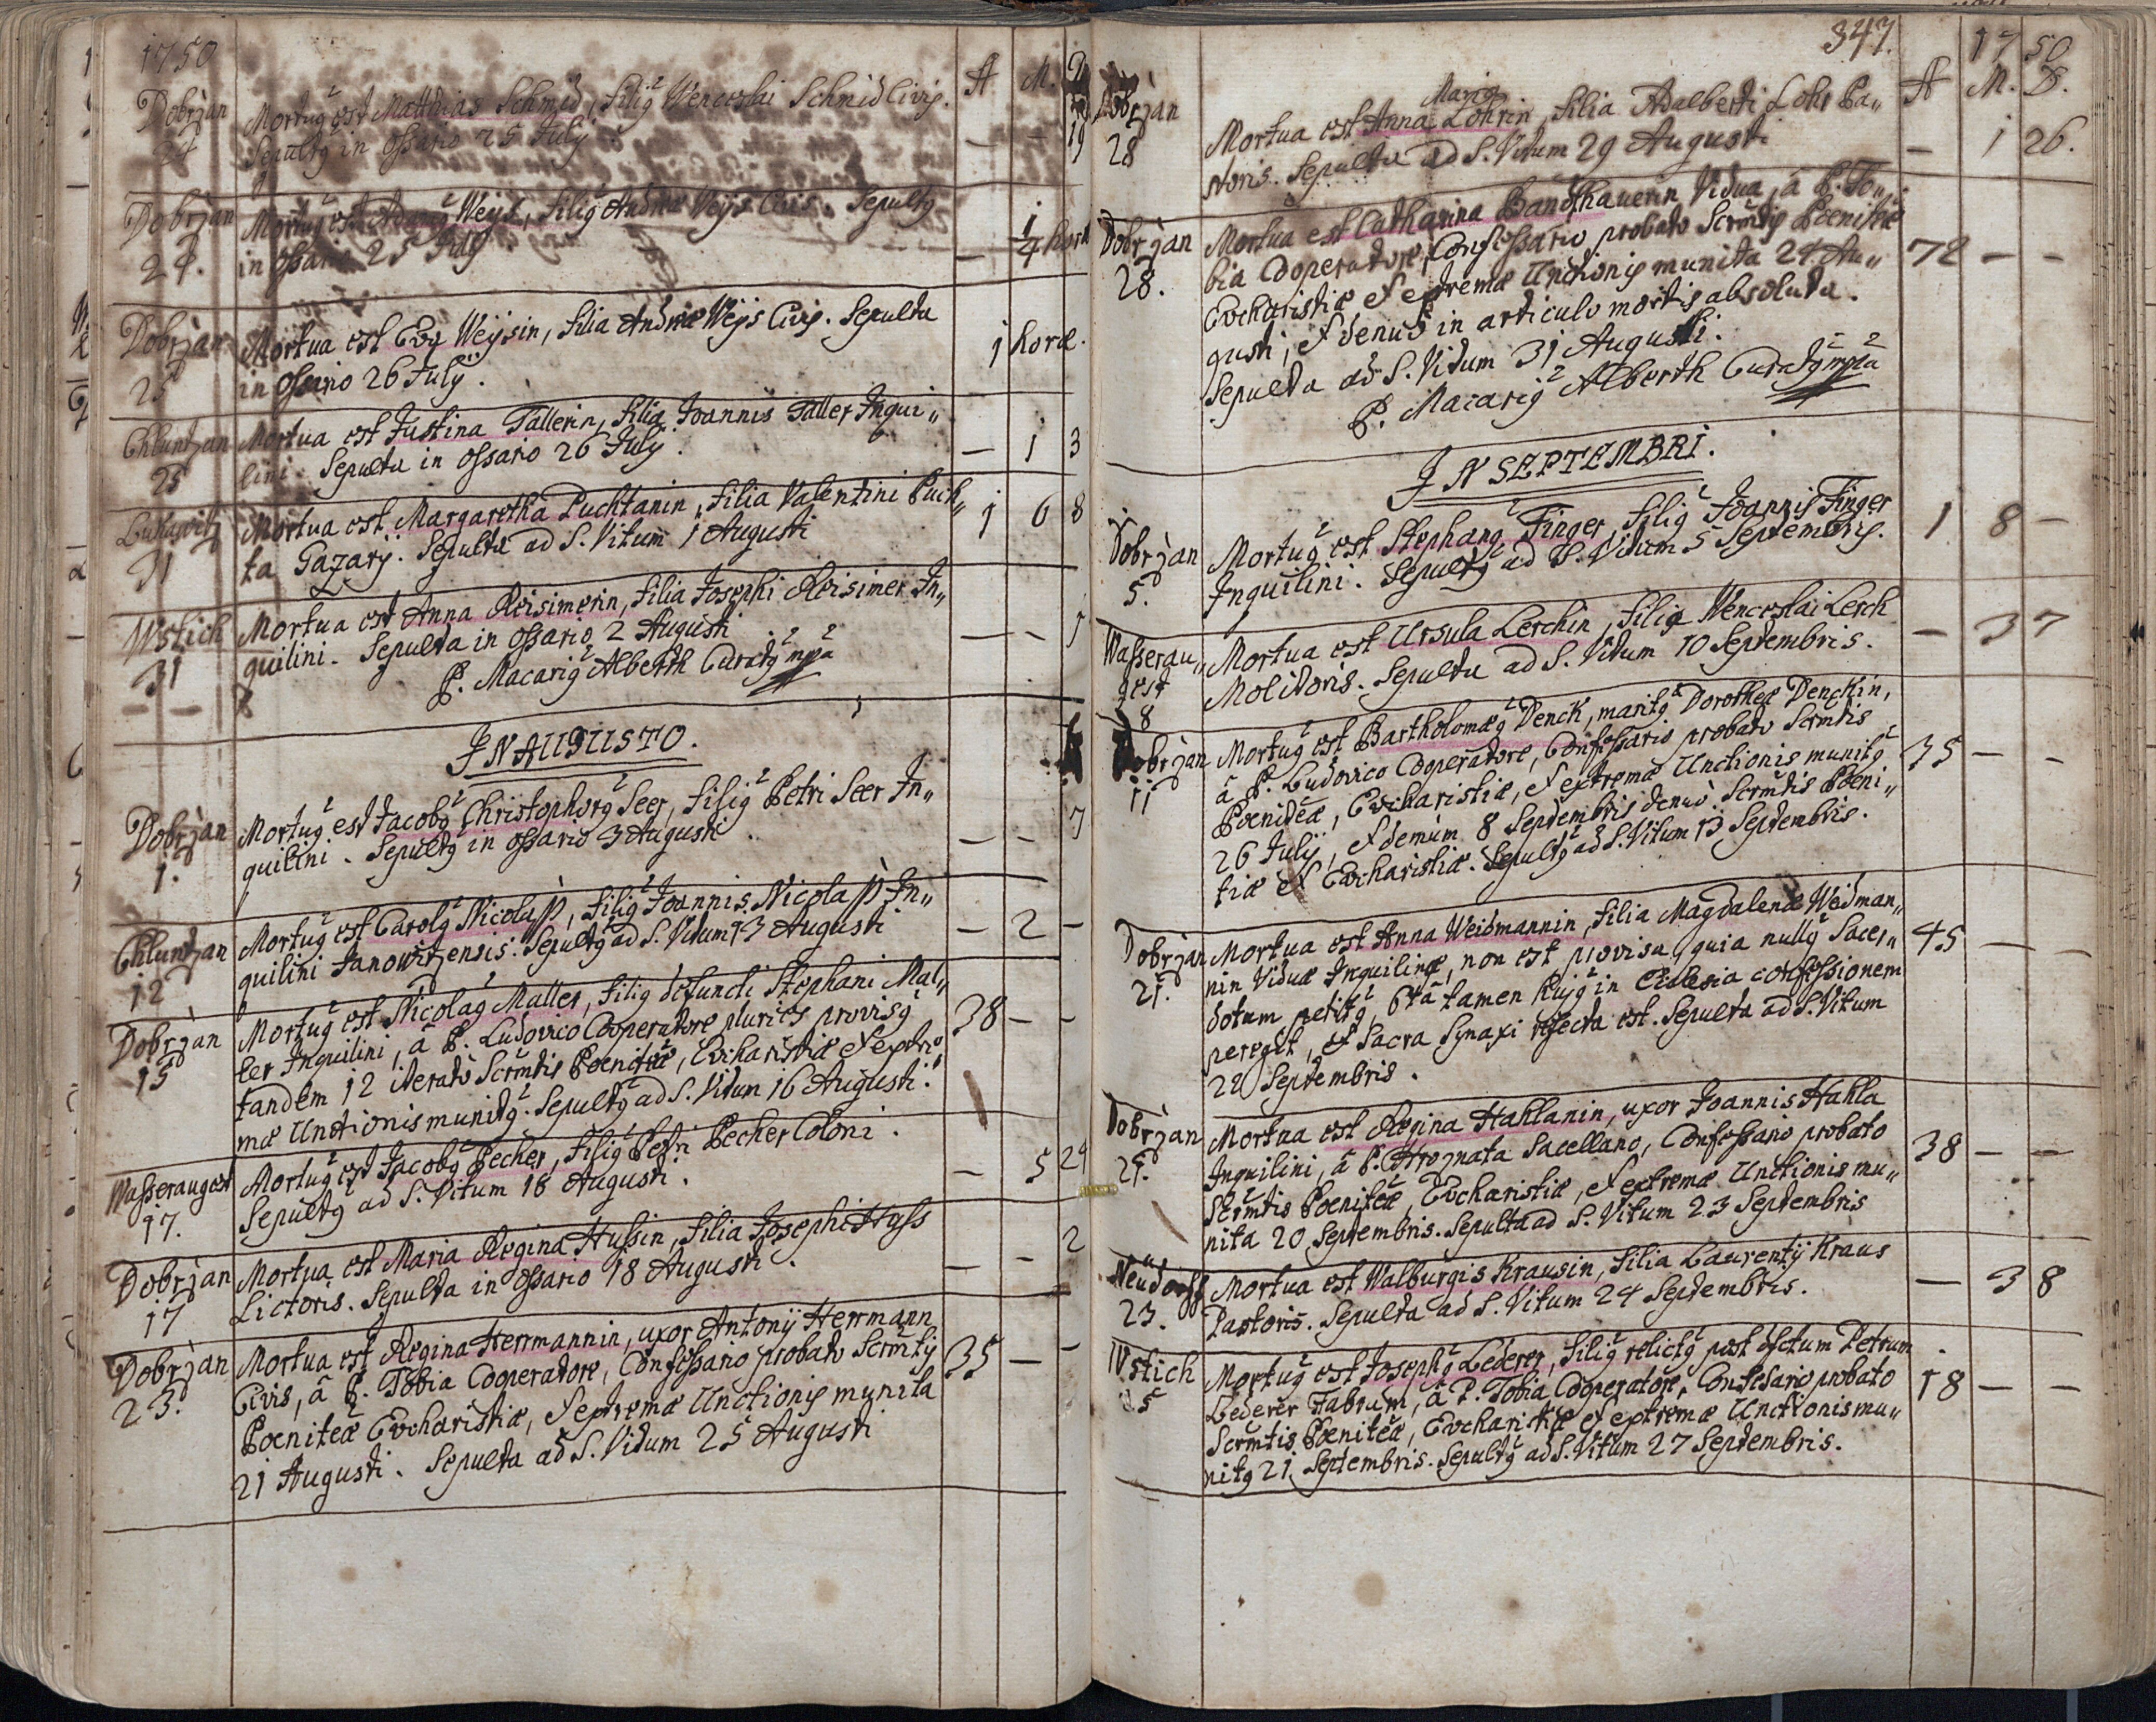 1750
A M. D
Dobrzan Mortuq est Mathias Schmid, filiq Wenceslai Schmid Civis.
24 Sepultq in ossario 25 July. — — 19
Dobrzan Mortuq est Adamq Weÿs, filiq Andreæ Weÿs Civis. Sepultq
24. in ossario 25 July. — 1/4 hora
Dobrzan Mortua est Eva Weÿsin, filia Andreæ Weÿs Civis. Sepulta
25 in ossario 26 July. 1 horæ.
Chluntzan Mortua est Justina Tallerin, filia Joannis Taller Inqui„
25 lini. Sepulta in ossario 26 July. — 1 3
Lukawitz Mortua est Margaretha Puchtanin, filia Valentini Puch„ 1 6 8
31 ta Gazarÿ. Sepulta ad S. Vitum 1 Augusti
Wstich Mortua est Anna Reisimerin, filia Josephi Reisimer In„
31 quilini. Sepulta in ossario 2 Augusti — — 1
P. Macariq Alberth Curatq mpa
IN AUGUSTO.
Dobrzan Mortuq est Jacobq Christophorq Seer, filiq Petri Seer In„
1. quilini. Sepultq in ossario 3 Augusti — — 7
Chluntzan Mortuq est Carolq Nicolaß, filiq Joannis Nicolaß In„
12 quilini Janowitzensis. Sepultq ad S. Vitum 13 Augusti — 2 —
Dobrzan Mortuq est Nicolaq Maller, filiq defuncti Stephani Mal„
15 ler Inquilini, à P. Ludovico Cooperatore pluries provisq 38 — —
tandem 12 iterato Scrmtis Poenitæ, Evcharistiæ et extre„
mæ Unctionis munitq. Sepultq ad S. Vitum 16 Augusti.
Wasseraugest Mortuq est Jacobq Pecher, filiq Petri Pecher Coloni.
17. Sepultq ad S. Vitum 18 Augusti. — 5 29
Dobrzan Mortua est Maria Regina Hussin, filia Josephi Huss
17 Lictoris. Sepulta in ossario 18 Augusti. — — 2
Dobrzan Mortua est Regina Herrmannin, uxor Antonÿ Herrmann
23. Civis, à P. Tobia Cooperatore, Confessario probato Scrmtis 35 — —
Poeniteæ Evcharistiæ, et extremæ Unctionis munita
21 Augusti. Sepulta ad S. Vitum 25 Augusti
347.
17 50
A M. D.
Dobrzan Maria
Mortua est Anna Löhrin, filia Adalberti Löhr Pa„
28 storis. Sepulta ad S. Vitum 29 Augusti — 1 26.
Dobrzan Mortua est Catharina Bandthauerin Vidua, à P. To„
28. bia Cooperatore, Confessario probato Scrmtis Poenitæ 72 — —
Evcharistiæ et extremæ Unctionis munita 24 Au„
gusti, et denuò in articulo mortis absoluta.
Sepulta ad S. Vitum 31 Augusti.
P. Macariq Alberth Curatq mpa
IN SEPTEMBRI.
Dobrzan Mortuq est Stephanq Finger, filiq Joannis Finger 1 8 —
5. Inquilini. Sepultq ad S. Vitum 5 Septembris.
Wasserau„ Mortua est Ursula Lerchin, filia Wenceslai Lerch — 3 7
gest Molitoris. Sepulta ad S. Vitum 10 Septembris.
8
Dobrzan Mortuq est Bartholomæq Denck, maritq Dorotheæ Denckin,
11 à P. Ludovico Cooperatore, Confessario probato Scrmtis 35 — —
Poeniteæ, Evcharistiæ, et extremæ Unctionis munitq
26 July, et demùm 8 Septembris denuò Scrmtis Poeni„
tiæ et Evcharistiæ. Sepultq ad S. Vitum 13 Septembris.
Dobrzan Mortua est Anna Weidmannin, filia Magdalenæ Weidman„ 45 — —
21. nin Viduæ Inquilinæ, non est provisa, quia nullq Sacer„
dotum petitq, 6tâ tamen hujq in Eclesia confessionem
peregit, et Sacra Synaxi refecta est. Sepulta ad S. Vitum
22 Septembris.
Dobrzan Mortua est Regina Hahlanin, uxor Joannis Hahla
21. Inquilini, à P. Hroznata Sacellano, Confessario probato 38 — —
Scrmtis Poeniteæ, Evcharistiæ, et extremæ Unctionis mu„
nita 20 Septembris. Sepulta ad S. Vitum 23 Septembris
Neüdorff Mortua est Walburgis Krausin, filia Laurentÿ Kraus — 3 8
23. Pastoris. Sepulta ad S. Vitum 24 Septembris.
Wstich Mortuq est Josephq Lederer, filiq relictq post defctum Petrum
25 Lederer Fabrum, à P. Tobia Cooperatore, Confesario probato 18 — —
Scrmtis Poeniteæ, Evcharistiæ et extremæ Unctionis mu„
nitq 21 Septembris. Sepultq ad S. Vitum 27 Septembris.